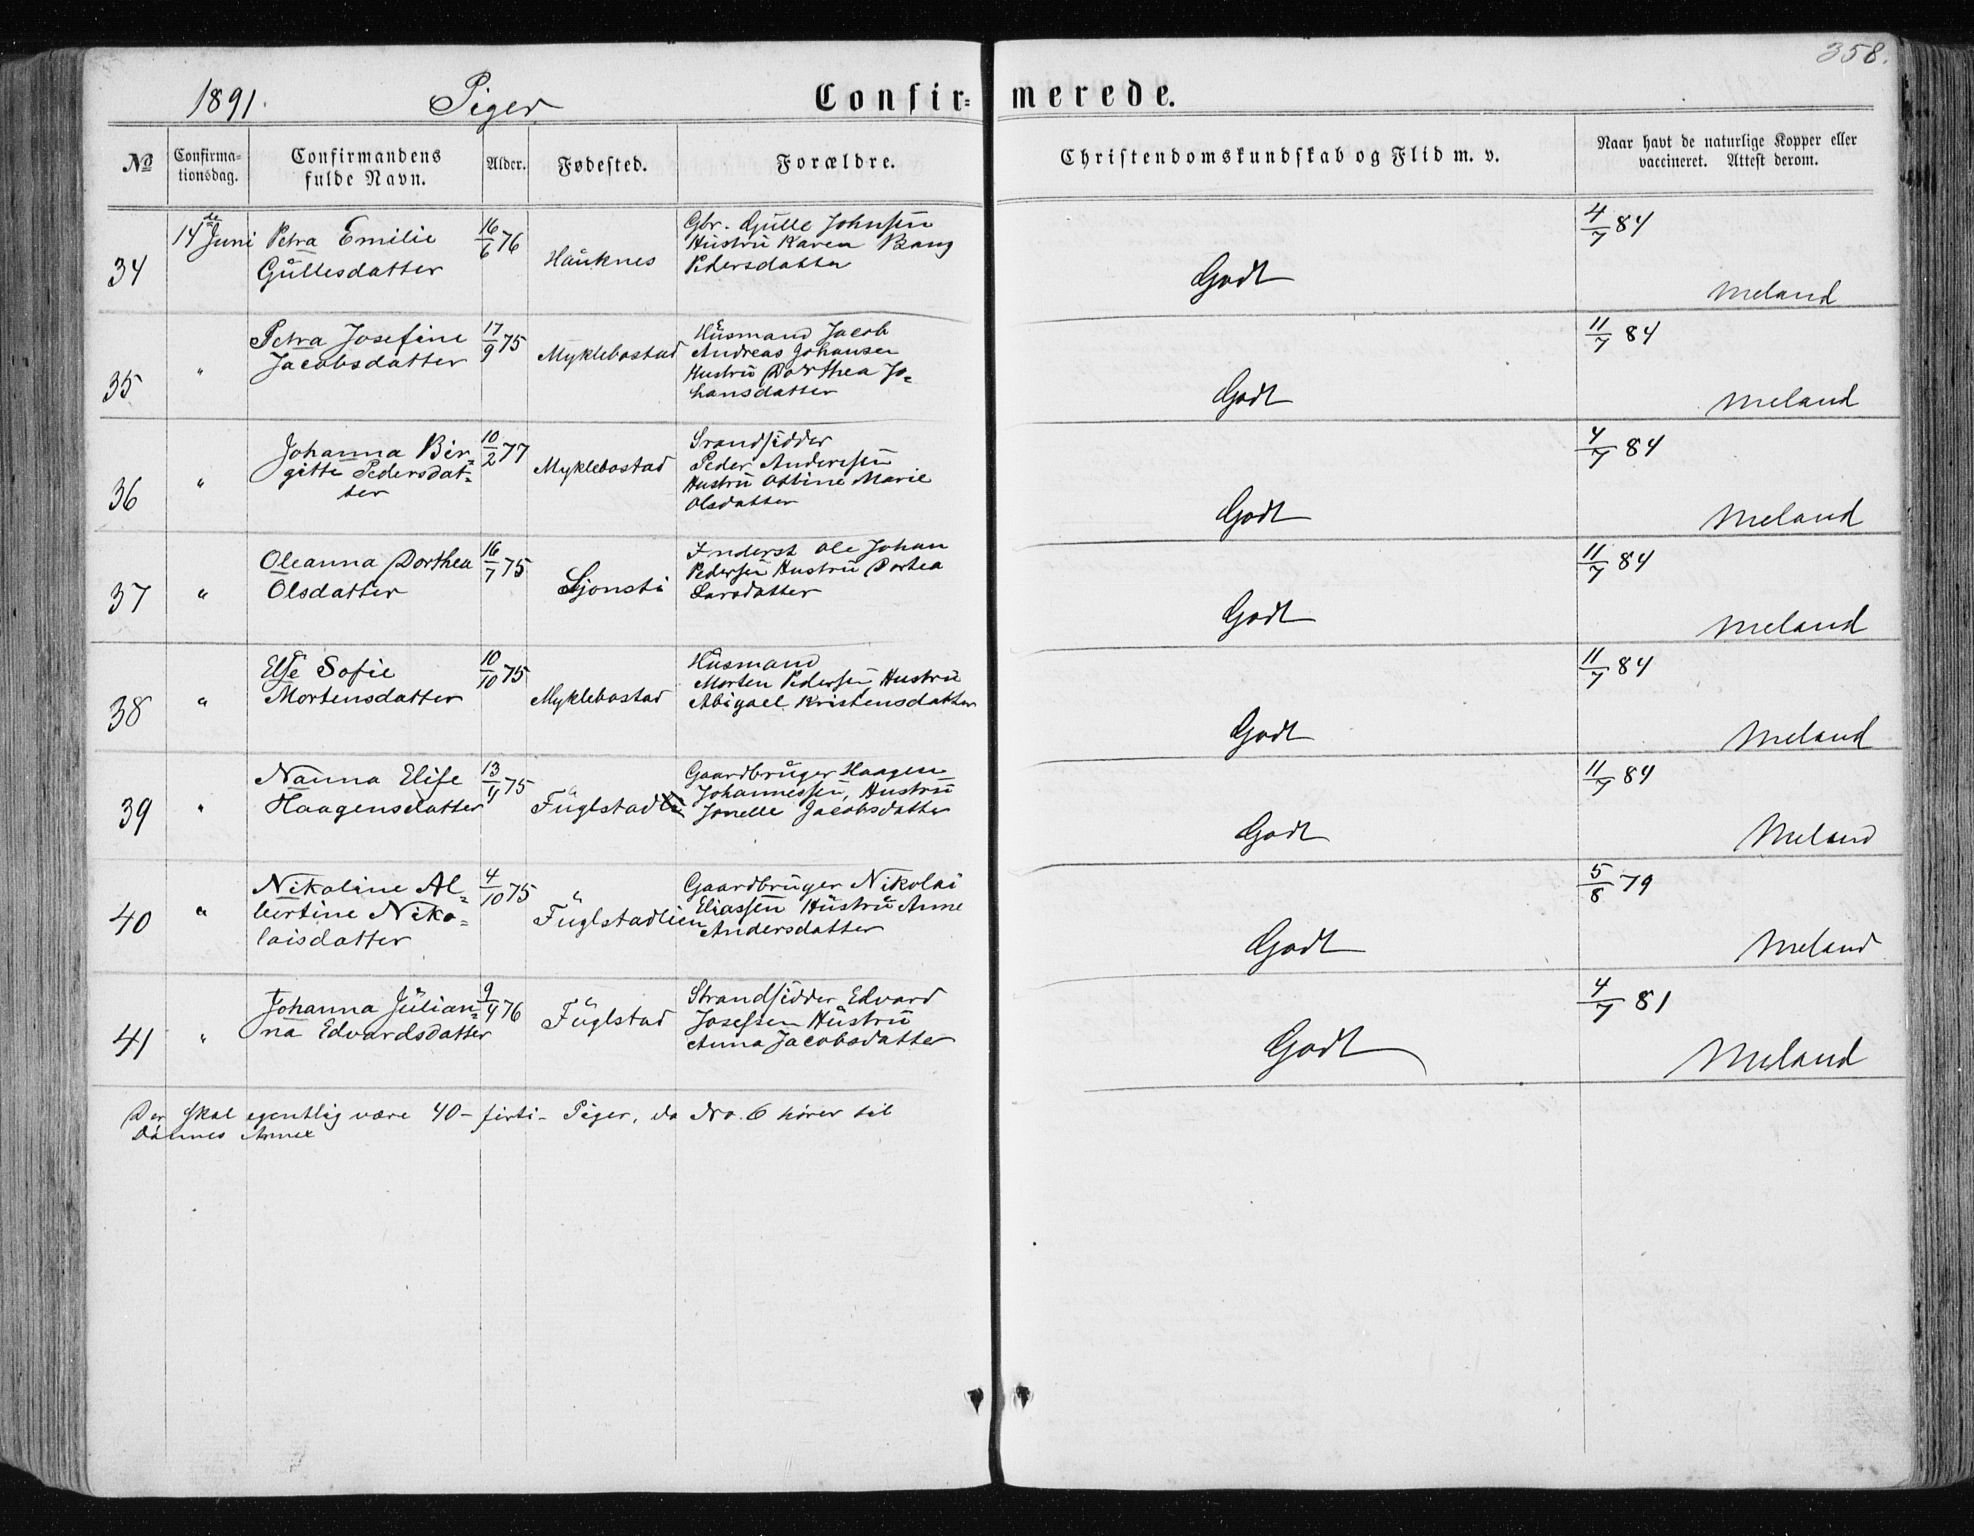 358.
1891. Piger Confir- merede.
No Confirma- tionsdag. Confirmandens fulde Navn. Alder. Fødested. Forældre. Christendomskundskab og Flid m. v. Naar havt de naturlige Kopper eller vaccineret. Attest derom.
34 14de Juni Petra Emilie 16/6 76 Hauknes Gbr. Gulle Johnsen 4/7 84
Gullesdatter Hustru Karen Bang
Pedersdatter Godt Meland
35 " Petra Josefine 17/9 75 Myklebostad Husmand Jacob 11/7 84
Jacobsdatter Andreas Johansen
Hustru Dorthea Jo-
hansdatter Godt Meland
36 " Johanna Bir- 10/2 77 Myklebostad Srandsidder 4/7 84
gitte Pedersdat- Peder Andersen
ter Hustru Ottine Marie
Olsdatter Godt Meland
37 " Oleanna Dorthea 16/7 75 Sjonsti Inderst Ole Johan 11/7 84
Olsdatter Pedersen Hustru Dortea
Larsdatter Godt Meland
38 " Else Sofie 10/10 75 Myklebostad Husmand 11/7 84
Mortensdatter Morten Pedersen Hustru
Abigael Kristensdatter Godt Meland
39 " Nanna Elise 13/4 75 Fuglstadli Gaardbruger Haagen 11/7 84
Haagensdatter Johannessen, Hustru
Jonelle Jacobsdatter Godt Meland
40 " Nikoline Al- 4/10 75 Fuglstadlien Gaardbruger Nikolai 5/8 79
bertine Niko- Eliassen Hustru Anne
laisdatter Andersdatter Godt Meland
41 " Johanna Julian- 9/4 76 Fuglstad Strandsidder Edvard 4/7 81
na Edvardsdatter Josefsen Hustru
Anna Jacobsdatter Godt Meland
Der skal egentlig være 40 - firti - Piger, da No. 6 hører til
Dønnes Annex